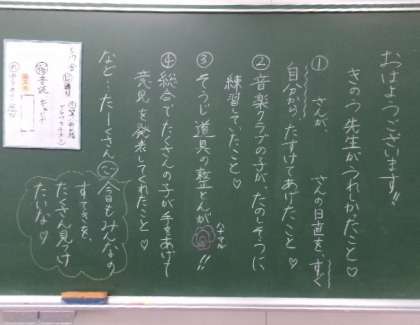 おはようございます!!
きのう先生がうれしかったこと♡
① さんが、 さんの日直を、すぐ
自分からたすけてあげたこと♡
②音楽クラブの子が、たのしそうに
練習していたこと♡
③そうじ道具の整とんが!!
④総合でたくさんの子が手をあげて
意見を発表してくれたこと♡
など…たーくさん
今日もみんなの
すてきを、
たくさん見つけ
たいな♡